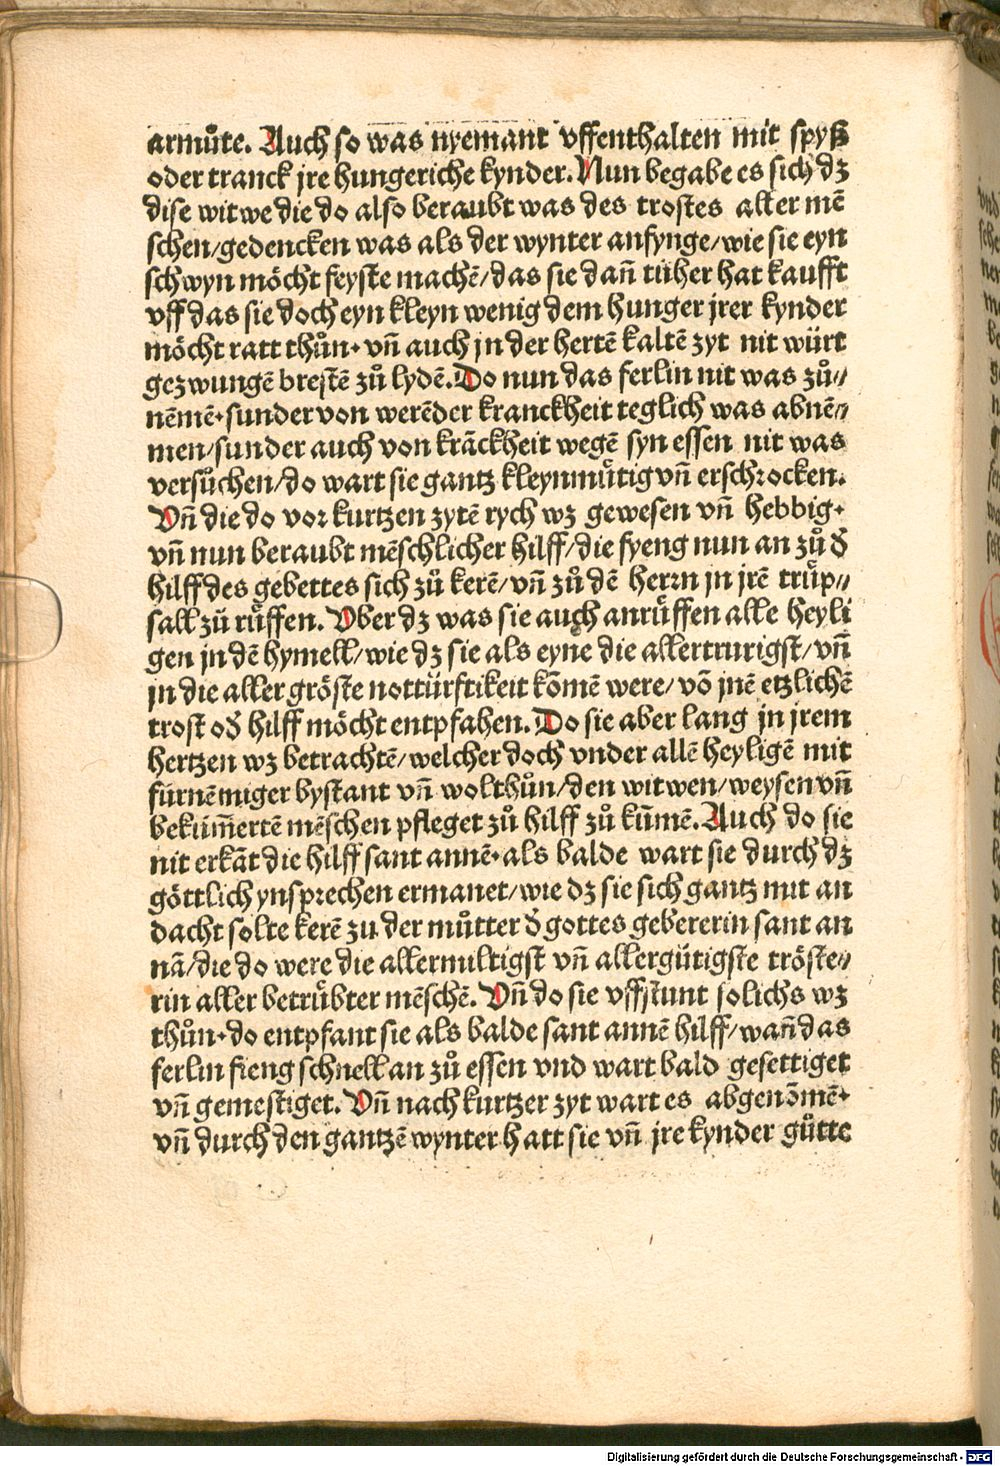 armůte. Auch so was nyemant vffenthalten mit spyß
oder tranck jre hungeriche kynder. Nun begabe es sich dz
dise witwe die do also beraubt was des trostes aller mē
schen/gedencken was als der wynter anfynge/wie sie eyn
schwyn möcht feyste machē/das sie dañ tüher hat kaufft
vff das sie doch eyn kleyn wenig dem hunger jrer kynder
möcht ratt thůn. vñ auch jn der hertē kaltē zyt nit würt
gezwungē brestē zů lydē. Do nun das ferlin nit was zů//
nēmē. sunder von werēder kranckheit teglich was abnē//
men/sunder auch von krāckheit wegē syn essen nit was
versůchen/do wart sie gantz kleynmütig vñ erschrocken.
Vñ die do vor kurtzen zytē rych wz gewesen vñ hebbig.
vñ nun beraubt mēschlicher hilff/die fyeng nun an zů d̄
hilff des gebettes sich zů kerē/vñ zů dē herrn jn jrē trüp//
sall zů rüffen. Vber dz was sie auch anrüffen alle heyli
gen jn dē hymell/wie dz sie als eyne die allertrurigst/vñ
jn die aller gröste nottürftikeit kōmē were/vō jnē etzlichē
trost od̄ hilff möcht entpfahen. Do sie aber lang jn jrem
hertzen wz betrachtē/welcher doch vnder allē heyligē mit
fürnēmiger bystant vñ wolthůn/den witwen/weysen vñ
bekūm̄ertē mēschen pfleget zů hilff zů kūmē. Auch do sie
nit erkāt die hilff sant annē. als balde wart sie durch dz
göttlich ynsprechen ermanet/wie dz sie sich gantz mit an
dacht solte kerē zu der můtter d̄ gottes gebererin sant an
nā/die do were die allermiltigst vñ allergütigste tröste//
rin aller betrübter mēschē. Vñ do sie vffstunt solichs wz
thůn. do entpfant sie als balde sant annē hilff/wañ das
ferlin fieng schnell an zů essen vnd wart bald gesettiget
vñ gemestiget. Vñ nach kurtzer zyt wart es abgenōmē.
vñ durch den gantzē wynter hatt sie vñ jre kynder gůtte
Digitalisierung gefördert durch die Deutsche Forschungsgemeinschaft - DFG